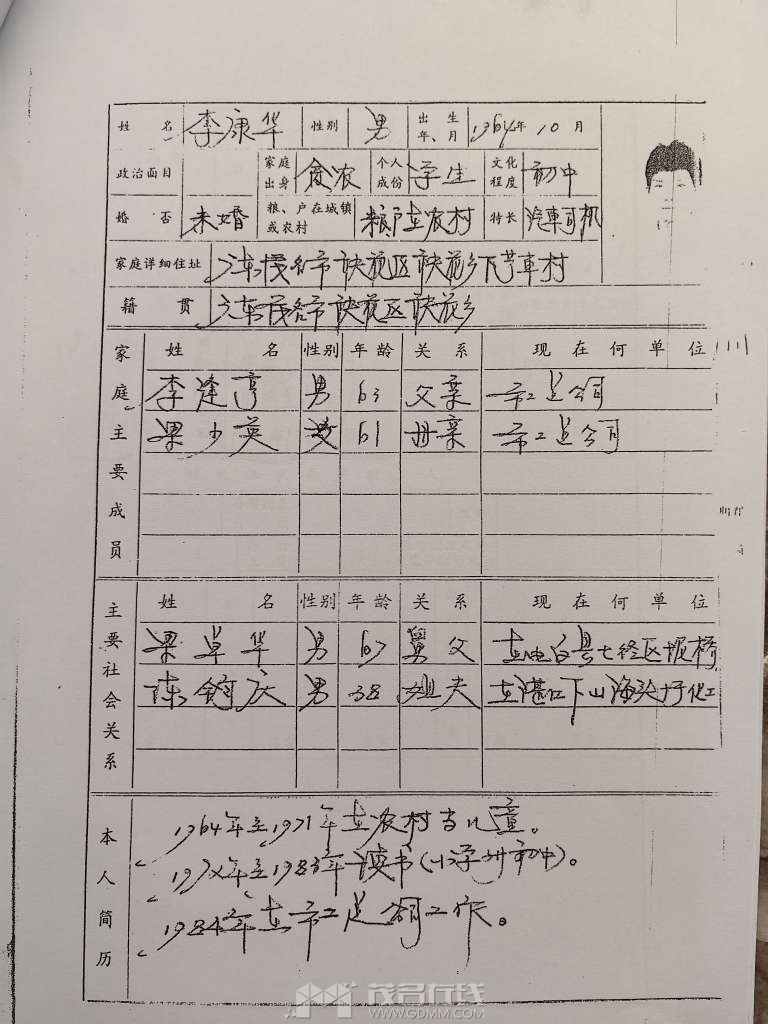 姓 名 李康华 性别 男 出生年、月 1964年10月
政治面目 家庭出身 贫农 个人成份 学生 文化程度 初中
婚否 未婚 粮、户在城镇或农村 粮户在农村 特长 汽車司机
家庭详细住址 广东茂名市 区 乡下 車村
籍贯 广东茂名市 区 乡
家庭主要成员
姓 名 性别 年龄 关系 现在何单位
李逢亨 男 63 父亲 市工 公司
梁少英 女 61 母亲 市工 公司
主要社会关系
姓 名 性别 年龄 关系 现在何单位
梁卓华 男 67 舅父 在电白县七迳区 桥
陈 庆 男 38 姐夫 在湛江下山海头圩化工
本人简历
1964年至1971年在农村当儿童。
197 年至1983年读书(小学 初中)。
1984年在市工 公司工作。
茂名在线
www.GDMM.com